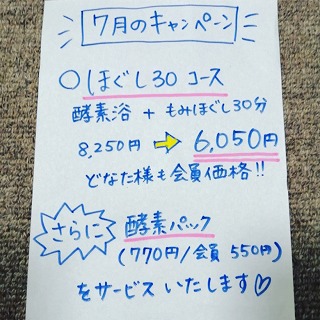 7月のキャンペーン
○ほぐし30コース
酵素浴 + もみほぐし30分
8,250円 → 6,050円
どなた様も会員価格!!
さらに 酵素パック
(770円/会員 550円)
をサービスいたします♡